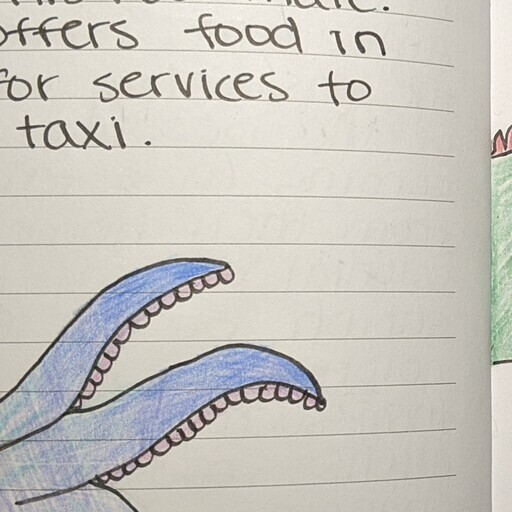 offers food in
for services to
taxi.